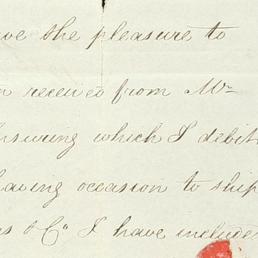 ve the pleasure to
n received from Mr
nsuring which I debit
having occasion to ship
s & Co I have include